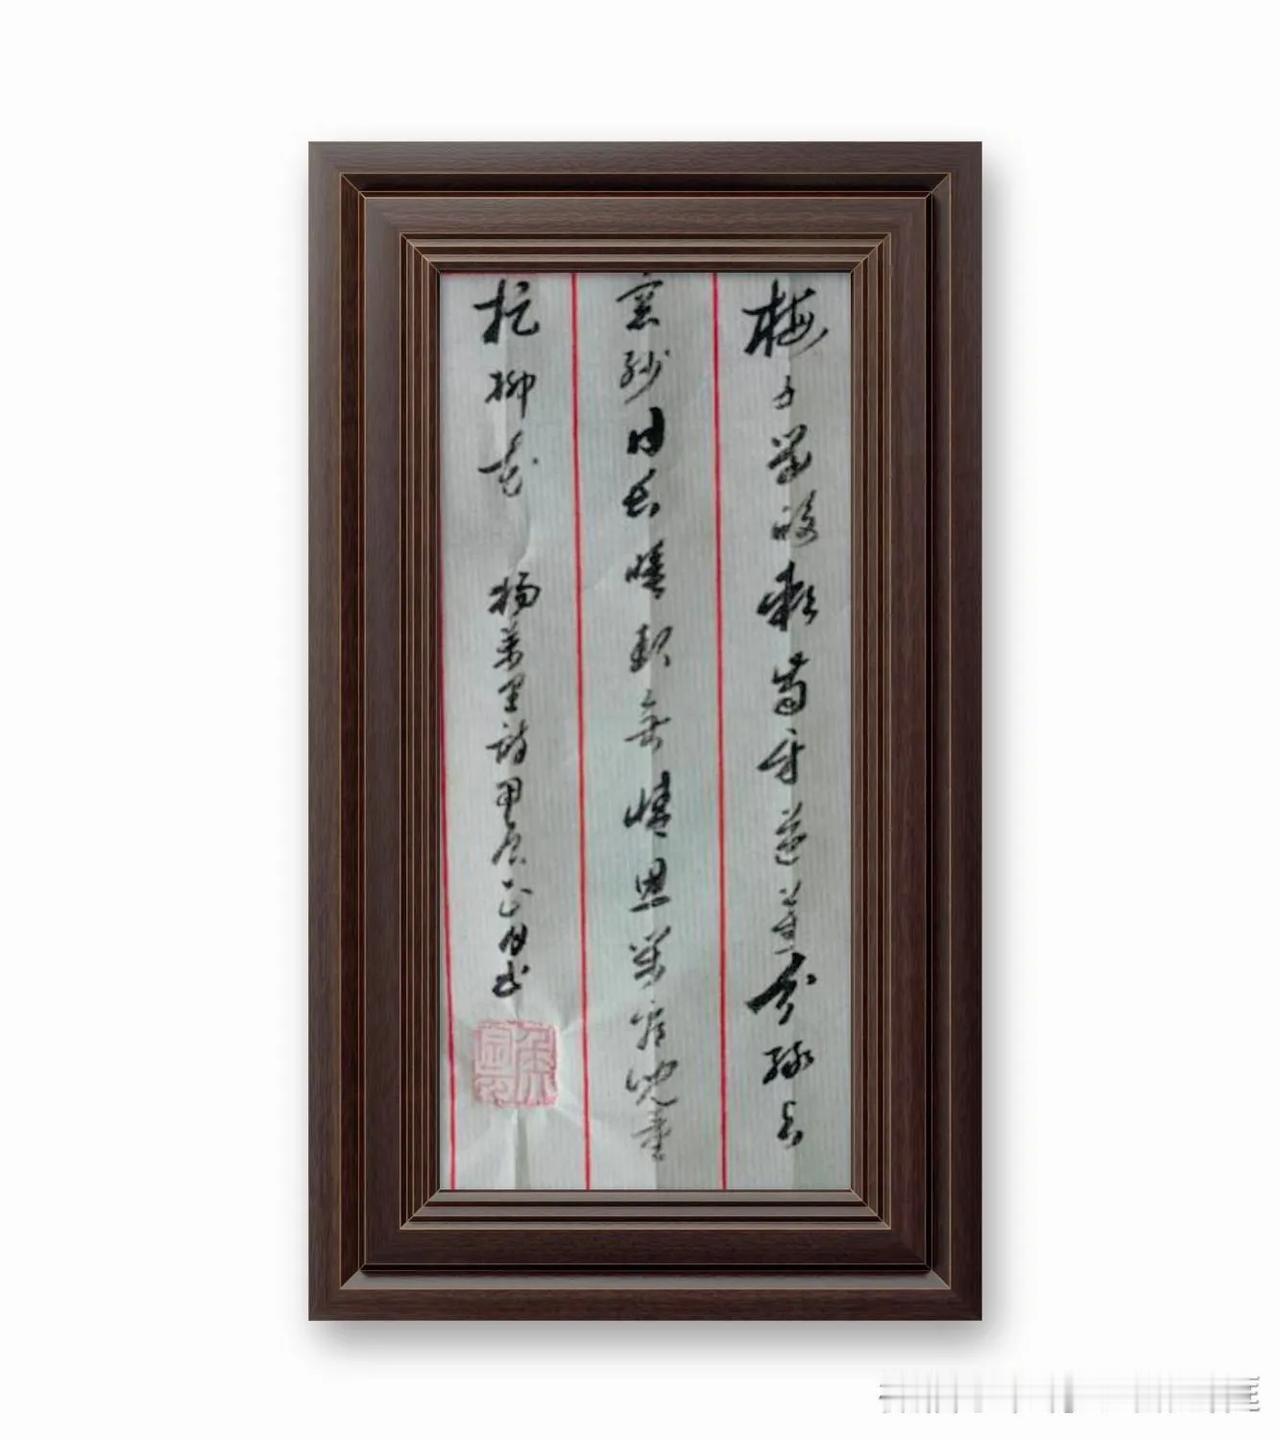 梅子留酸软齿牙芭蕉分绿与
窗纱日长睡起無情思闲看児童
捉柳花 杨萬里诗甲辰月书